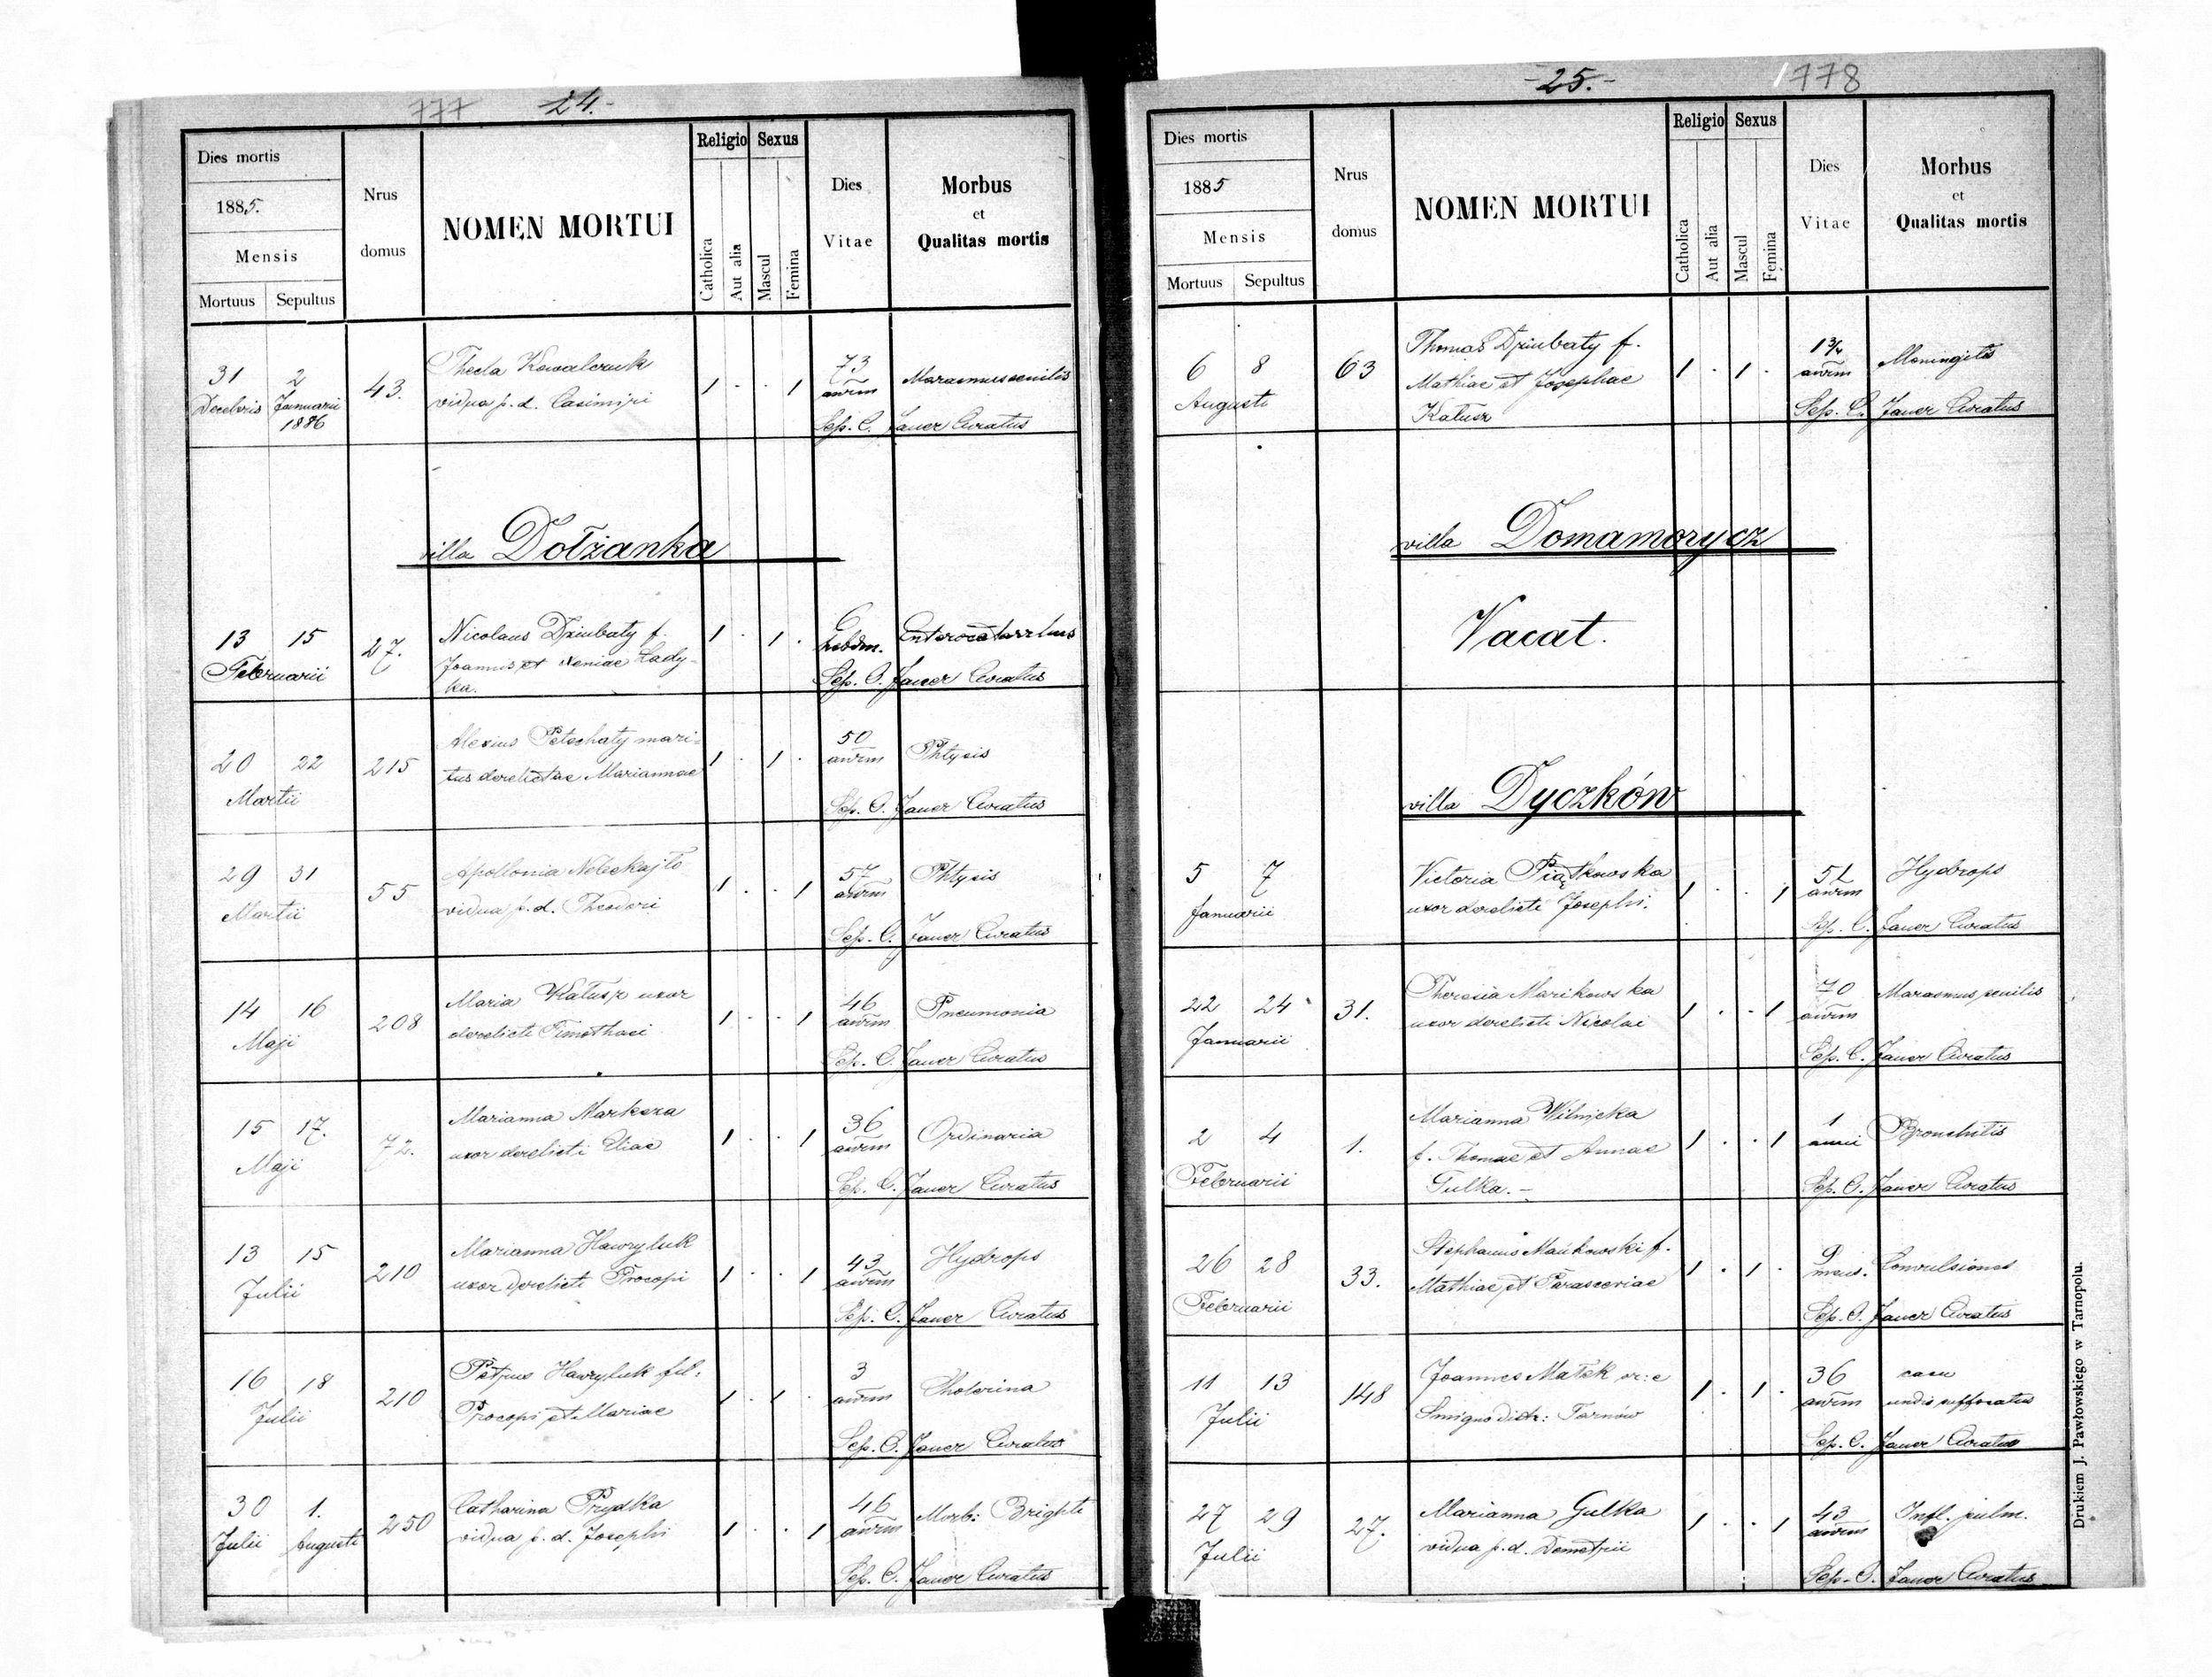 777 24.
Dies mortis
1885.
Mensis
Mortuus Sepultus
Nrus
domus
NOMEN MORTUI
Religio Sexus
Catholica
Aut alia
Mascul
Femina
Dies
Vitae
Morbus
et
Qualitas mortis
31 2 43. Thecla Kowalczuk 1 . . 1 73 Marasmus senilis
Decebris Januarii vidua p. d. Casimiri anrm
1886 Sep. C. Javer Curatus
villa Dołżanka
13 15 27. Nicolaus Dziubaty f. 1 . 1 . 6 Enterocatarrhus
Februarii Joannis et Xeniae Lady- hebdm.
ka. Sep. C. Javer Curatus
20 22 215 Alexius Petechaty mari- 1 . 1 . 50 Phtysis
Martii tus derelictae Mariannae anrm
Sep. C. Javer Curatus
29 31 55 Apollonia 1 . . 1 57 Phtysis
Martii vidua p. d. Theodori anrm
Sep. C. Javer Curatus
14 16 208 Maria Kałusz uxor 1 . . 1 46 Pneumonia
Maji derelicti Timothaei anrm
Sep. C. Javer Curatus
15 17. 72. Marianna 1 . . 1 36 Ordinaria
Maji uxor derelicti Eliae anrm
Sep. C. Javer Curatus
13 15 210 Marianna Hawryluk 1 . . 1 43 Hydrops
Julii uxor derelicti Procopi anrm
Sep. C. Javer Curatus
16 18 210 Petrus Hawryluk fil: 1 . 1 . 3 Cholerina
Julii Procopi et Mariae anrm
Sep. C. Javer Curatus
30 1. 250 Catharina Prydka 1 . . 1 46 Morb: Brighti
Julii Augusti vidua p. d. Josephi anrm
Sep. C. Javer Curatus
-25.- 778
Dies mortis
1885
Mensis
Mortuus Sepultus
Nrus
domus
NOMEN MORTUI
Religio Sexus
Catholica
Aut alia
Mascul
Femina
Dies
Vitae
Morbus
et
Qualitas mortis
6 8 63 Thomas Dziubaty f. 1 . 1 . 1 3/4 Meningitis
Augusti Mathiae et Josephae anrm
Kałusz Sep. C. Javer Curatus
villa Domamorycz
Vacat.
villa Dyczków
5 7 Victoria Piątkowska 1 . . 1 51 Hydrops
Januarii uxor derelicti Josephi. anrm
Sep. C. Javer Curatus
22 24 31. Theresia Marikowska 1 . . 1 70 Marasmus senilis
Januarii uxor derelicti Nicolai anrm
Sep. C. Javer Curatus
2 4 1. Marianna Wilnicka 1 . . 1 1 Bronchitis
Februarii f. Thomae et Annae anni
Gulka. - Sep. C. Javer Curatus
26 28 33. Stephanus Mańkowski f. 1 . 1 . 9 Convulsiones
Februarii Mathiae et Parasceviae mens.
Sep. C. Javer Curatus
11 13 148 Joannes Małek or: e 1 . 1 . 36 casu
Julii Smigno distr: Tarnów anrm undis suffocatus
Sep. C. Javer Curatus
27 29 27. Marianna Gulka 1 . . 1 43 Infl. pulm.
Julii vidua p. d. Demetrii anrm
Sep. C. Javer Curatus
Drukiem J. Pawłowskiego w Tarnopolu.